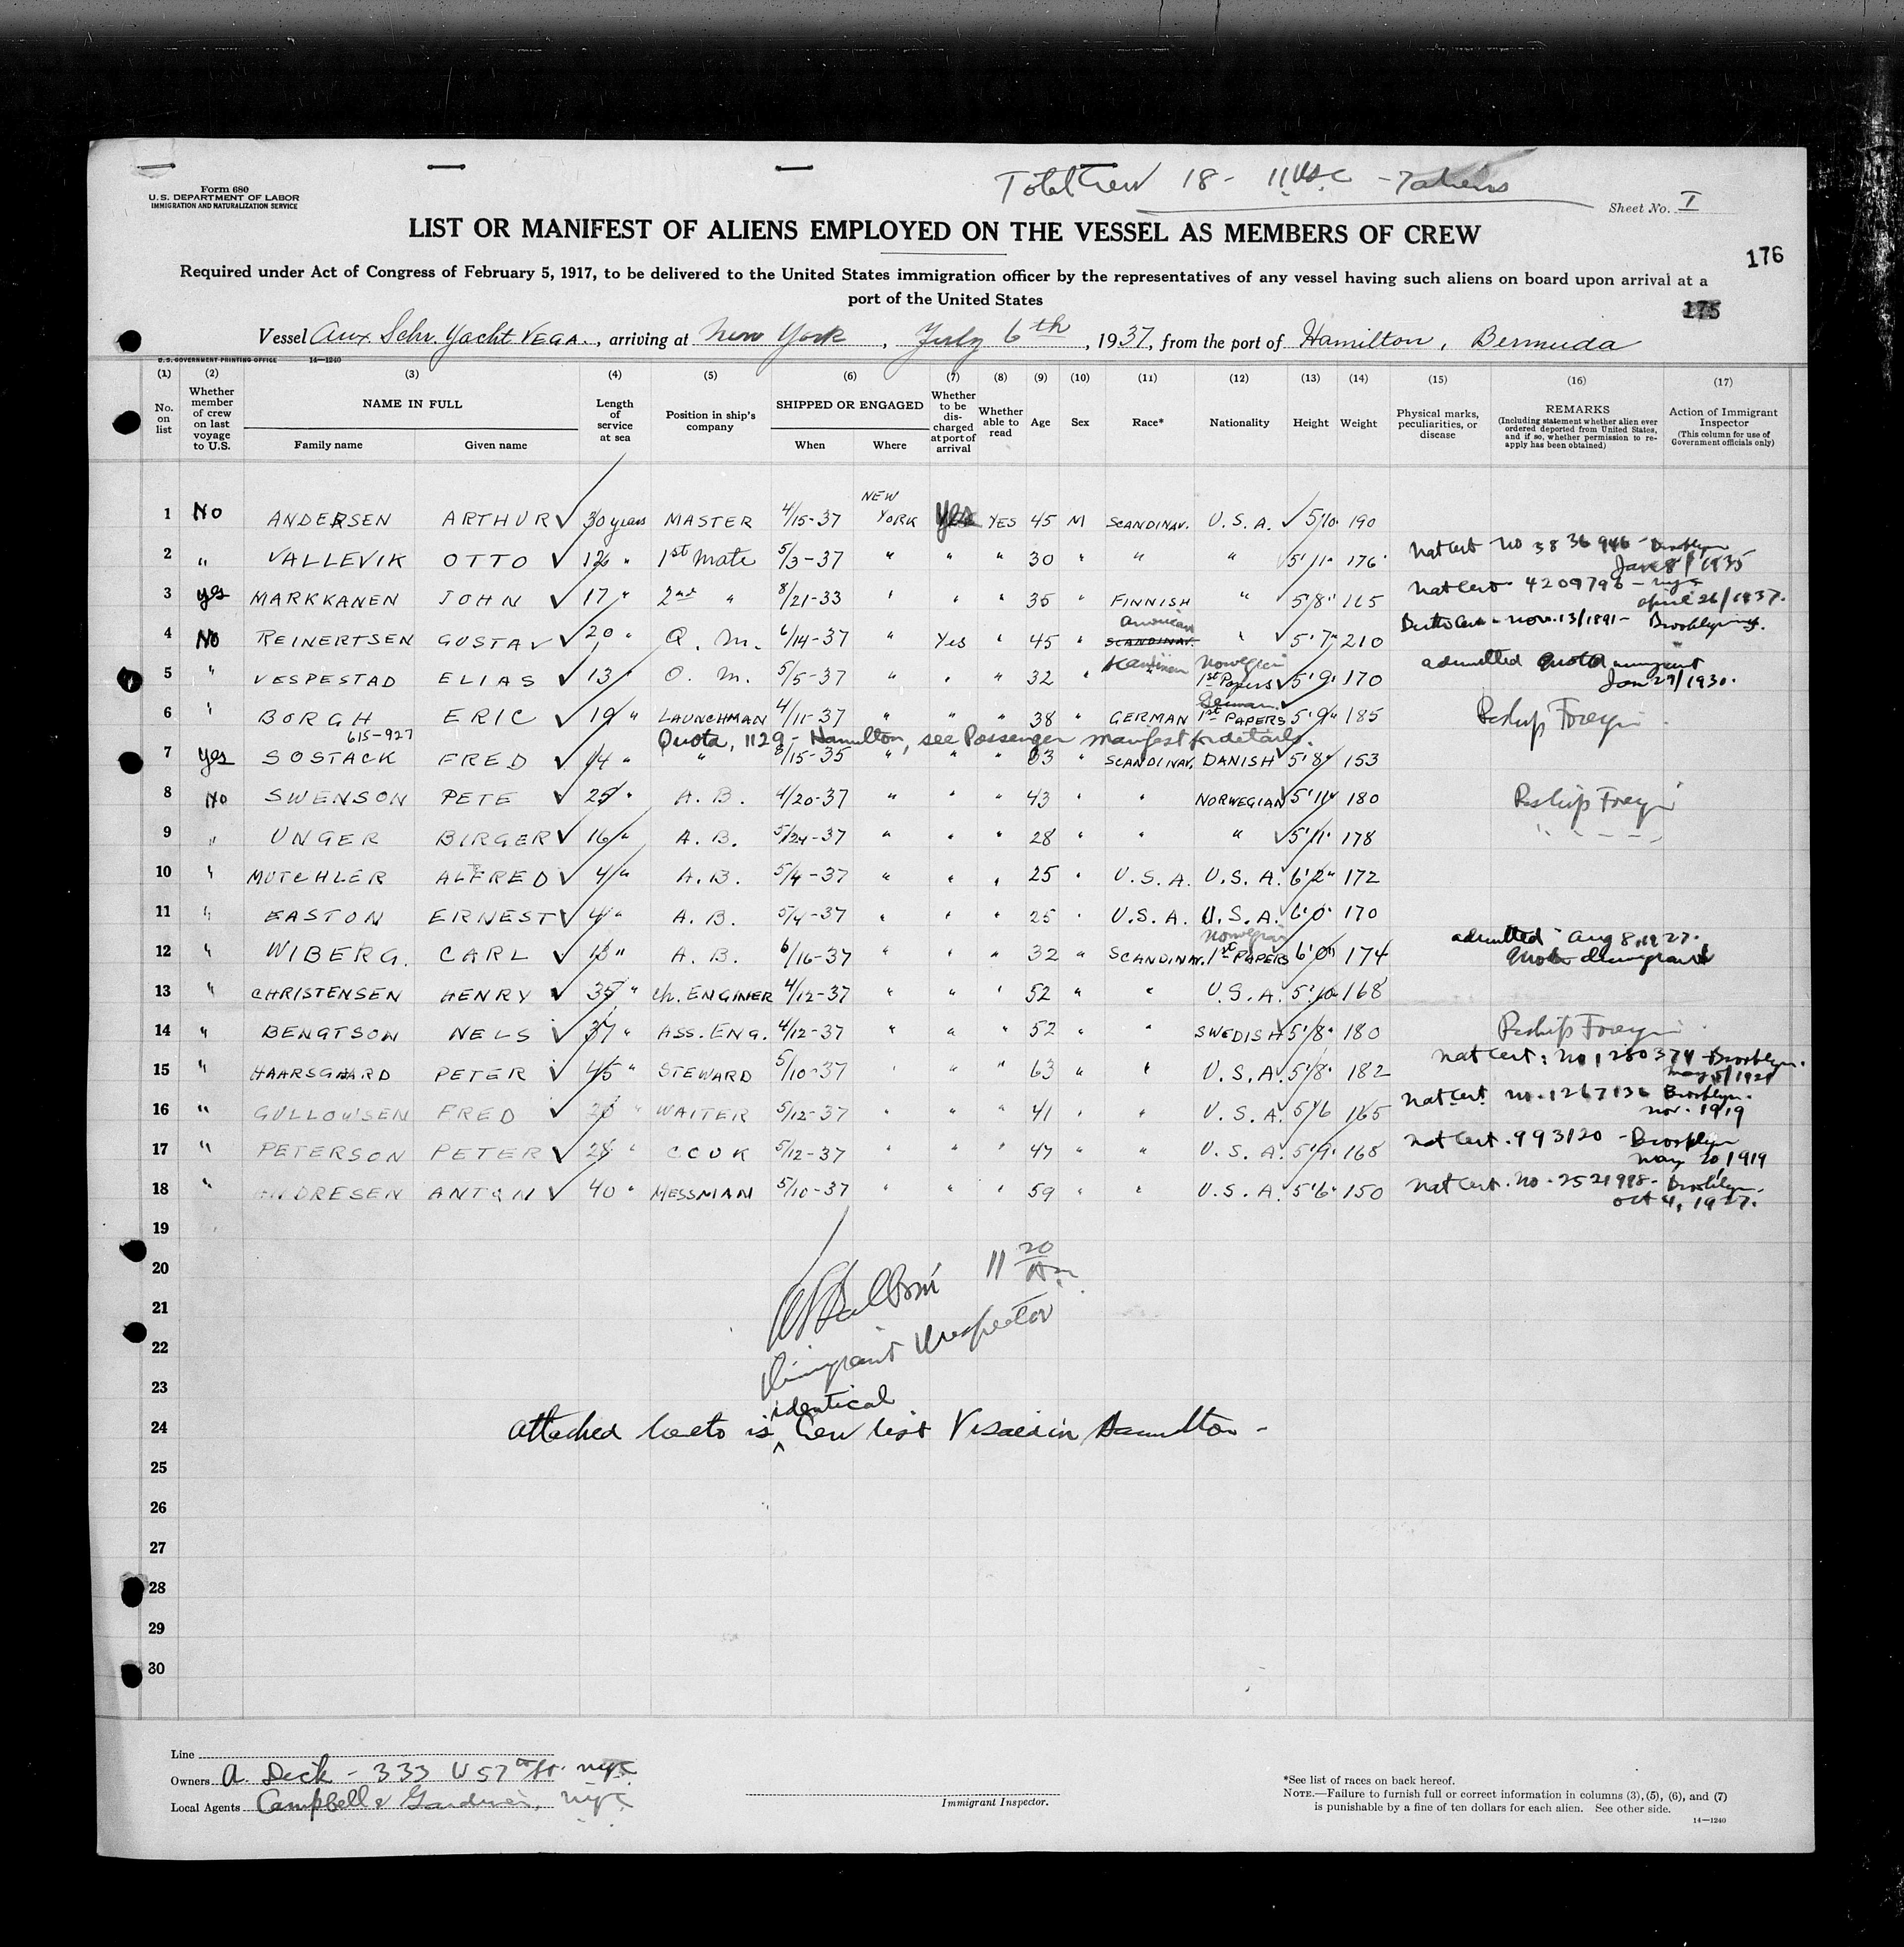 Total Crew 18 - 11 USC - 7 aliens
Form 680
U.S. DEPARTMENT OF LABOR
IMMIGRATION AND NATURALIZATION SERVICE
Sheet No. I
LIST OR MANIFEST OF ALIENS EMPLOYED ON THE VESSEL AS MEMBERS OF CREW
176
Required under Act of Congress of February 5, 1917, to be delivered to the United States immigration officer by the representatives of any vessel having such aliens on board upon arrival at a
port of the United States
175
Vessel Aux Schr. Yacht VEGA., arriving at New York, July 6th, 1937, from the port of Hamilton, Bermuda
U.S. GOVERNMENT PRINTING OFFICE 14—1240
(1) (2) (3) (4) (5) (6) (7) (8) (9) (10) (11) (12) (13) (14) (15) (16) (17)
No. on list
Whether member of crew on last voyage to U.S.
NAME IN FULL
Family name Given name
Length of service at sea
Position in ship's company
SHIPPED OR ENGAGED
When Where
Whether to be discharged at port of arrival
Whether able to read
Age Sex Race* Nationality Height Weight
Physical marks, peculiarities, or disease
REMARKS
(Including statement whether alien ever ordered deported from United States, and if so, whether permission to reapply has been obtained)
Action of Immigrant Inspector
(This column for use of Government officials only)
1 No ANDERSEN ARTHUR ✓ 30 years MASTER 4/15-37 NEW YORK Yes YES 45 M SCANDINAV. U.S.A. ✓ 5'10" 190
2 " VALLEVIK OTTO ✓ 12 " 1st Mate 5/3-37 " " " 30 " " " 5'11" 176 Nat Cert No 3836946 - Brooklyn Jan 8/1935
3 yes MARKKANEN JOHN ✓ 17 " 2nd " 8/21-33 " " " 35 " FINNISH " 5'8" 165 Nat Cert 4209796 - NYC April 26/1937.
4 No REINERTSEN GUSTAV ✓ 20 " Q. M. 6/14-37 " Yes " 45 " SCANDINAV. American " ✓ 5'7" 210 Birth Cert - Nov. 13/1891 - Brooklyn NY.
5 " VESPESTAD ELIAS ✓ 13 " Q. M. 5/5-37 " " " 32 " Scandinav Norwegian 1st Papers ✓ 5'9" 170 admitted Quota immigrant Jan 29/1930.
6 " BORGH ERIC ✓ 19 " LAUNCHMAN 4/11-37 " " " 38 " GERMAN German 1st PAPERS ✓ 5'9" 185 Reship Foreign
615-927 Quota, 1129 - Hamilton, see Passenger manifest for details.
7 Yes SOSTACK FRED ✓ 14 " " 8/15-35 " " " 63 " SCANDINAV. DANISH ✓ 5'8" 153
8 No SWENSON PETE ✓ 25 " A.B. 4/20-37 " " " 43 " " NORWEGIAN ✓ 5'11" 180 Reship Foreign
9 " UNGER BIRGER ✓ 16 " A.B. 5/24-37 " " " 28 " " " ✓ 5'11" 178 " "
10 " MUTCHLER ALFRED ✓ 4 " A.B. 5/4-37 " " " 25 " U.S.A. U.S.A. ✓ 6'2" 172
11 " EASTON ERNEST ✓ 4 " A.B. 5/4-37 " " " 25 " U.S.A. U.S.A. ✓ 6'0" 170
12 " WIBERG. CARL ✓ 13 " A.B. 6/16-37 " " " 32 " SCANDINAV. Norwegian 1st PAPERS 6'0" 174 admitted - Aug 8, 1927. Quota Immigrant
13 " CHRISTENSEN HENRY ✓ 35 " Ch. ENGINER 4/12-37 " " " 52 " " U.S.A. 5'10" 168
14 " BENGTSON NELS ✓ 37 " ASS. ENG. 4/12-37 " " " 52 " " SWEDISH ✓ 5'8" 180 Reship Foreign
15 " HAARSGAARD PETER ✓ 45 " STEWARD 5/10-37 " " " 63 " " U.S.A. ✓ 5'8" 182 Nat Cert: No 1280374 - Brooklyn.
16 " GULLOWSEN FRED ✓ 20 " WAITER 5/12-37 " " " 41 " " U.S.A. ✓ 5'6 165 Nat Cert No. 1267136 Brooklyn. Nov. 1919
17 " PETERSON PETER ✓ 28 " COOK 5/12-37 " " " 47 " " U.S.A. ✓ 5'9" 168 Nat Cert. 993120 - Brooklyn May 20, 1919
18 " ANDRESEN ANTON ✓ 40 " MESSMAN 5/10-37 " " " 59 " " U.S.A. ✓ 5'6" 150 Nat Cert. No - 2521998 - Brooklyn. Oct 4, 1927.
19
20
11 20 Am
21
22
Immigrant Inspector
23
24 attached hereto is identical Crew list Visaed in Hamilton -
25
26
27
28
29
30
Line
Owners A. Dick - 333 W 57th St. NYC
Local Agents Campbell & Gardiner, NYC
Immigrant Inspector.
*See list of races on back hereof.
NOTE.—Failure to furnish full or correct information in columns (3), (5), (6), and (7)
is punishable by a fine of ten dollars for each alien. See other side.
14—1240